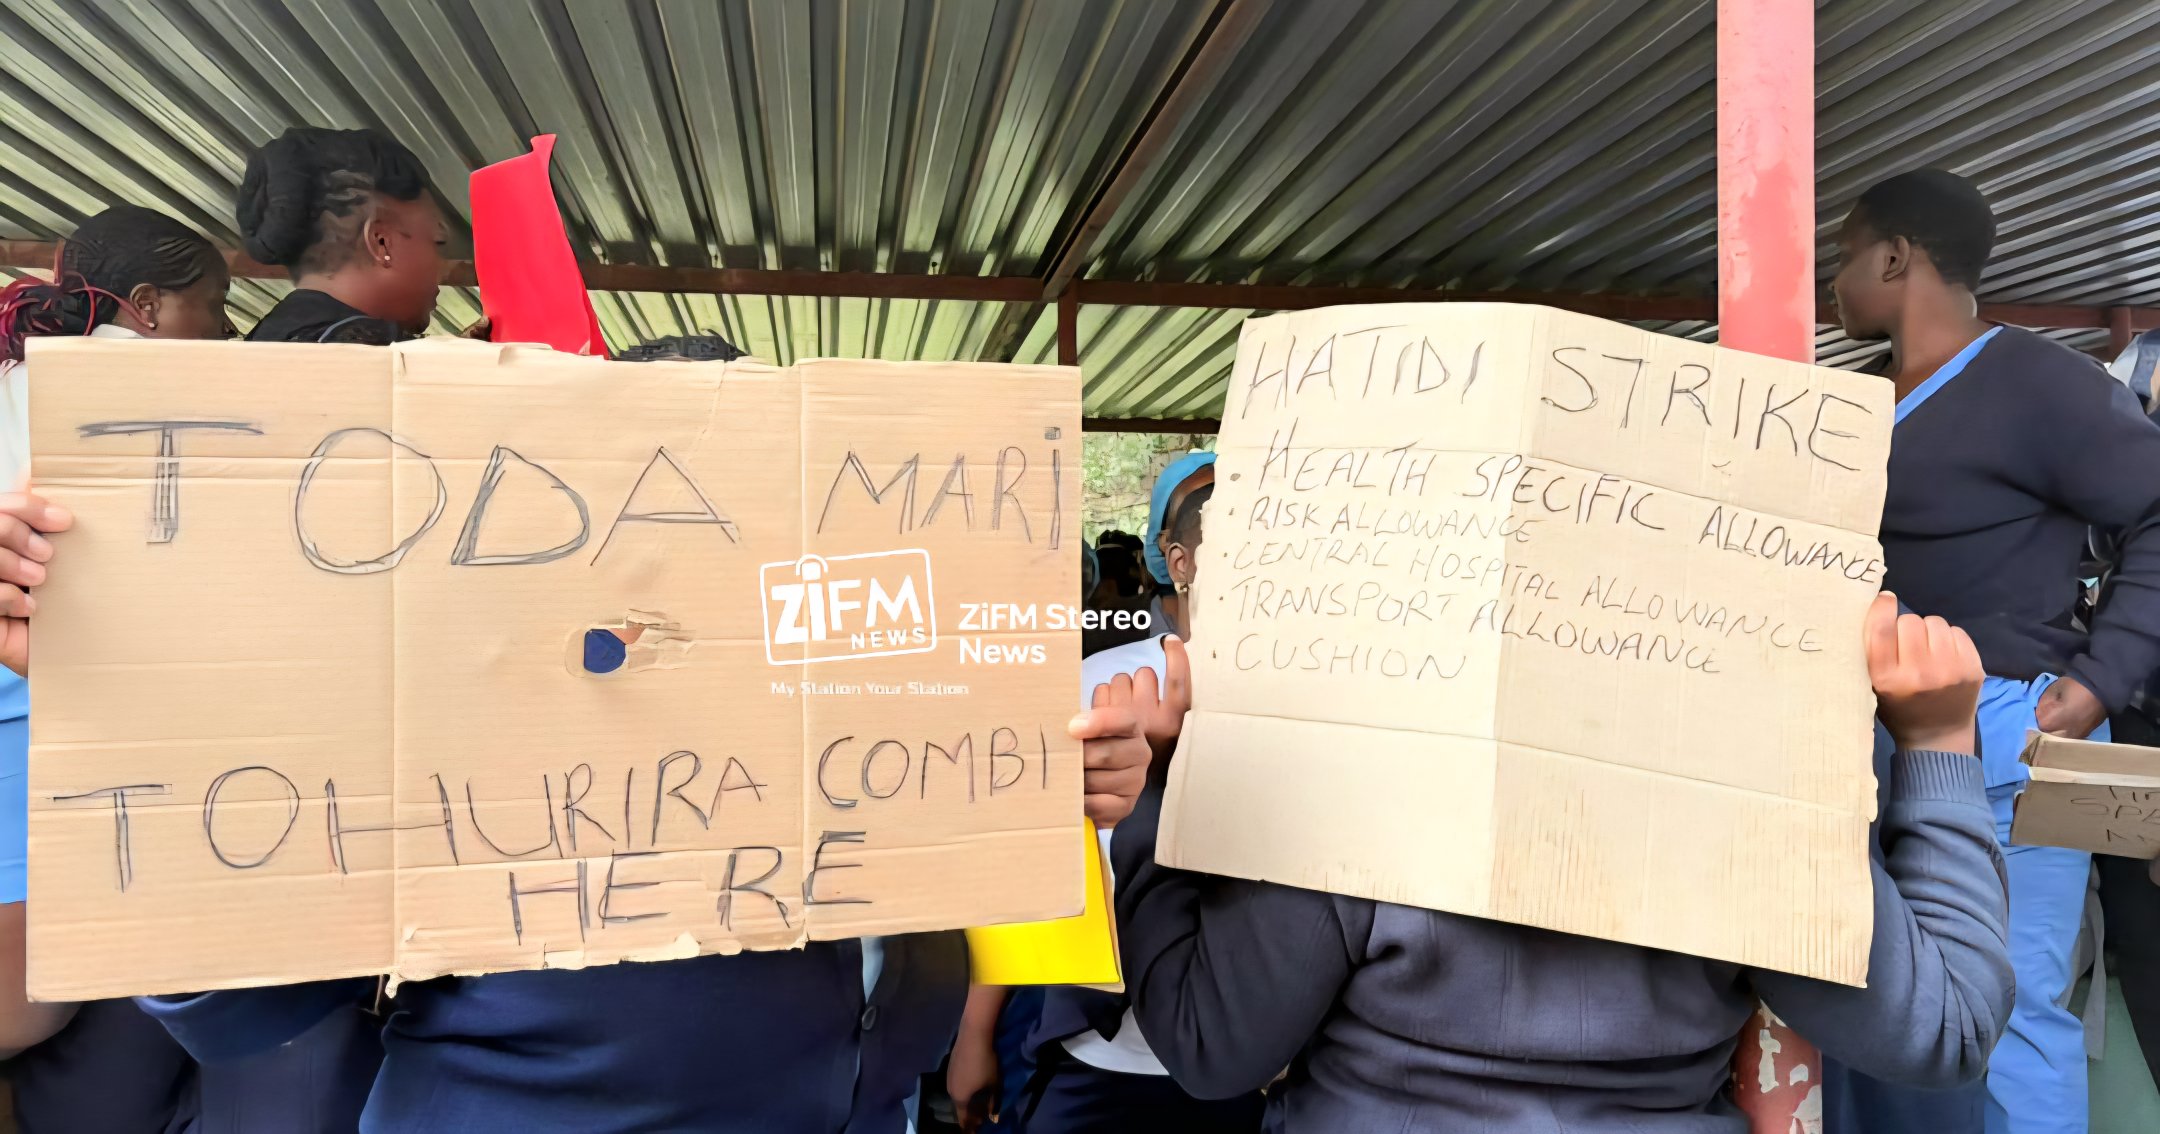 TODA MARi
TOHURIRA COMBI
HERE
ZiFM
NEWS
ZiFM Stereo
News
My Station Your Station
HATIDI STRIKE
• HEALTH SPECIFIC ALLOWANCE
• RISK ALLOWANCE
• CENTRAL HOSPITAL ALLOWANCE
• TRANSPORT ALLOWANCE
• CUSHION